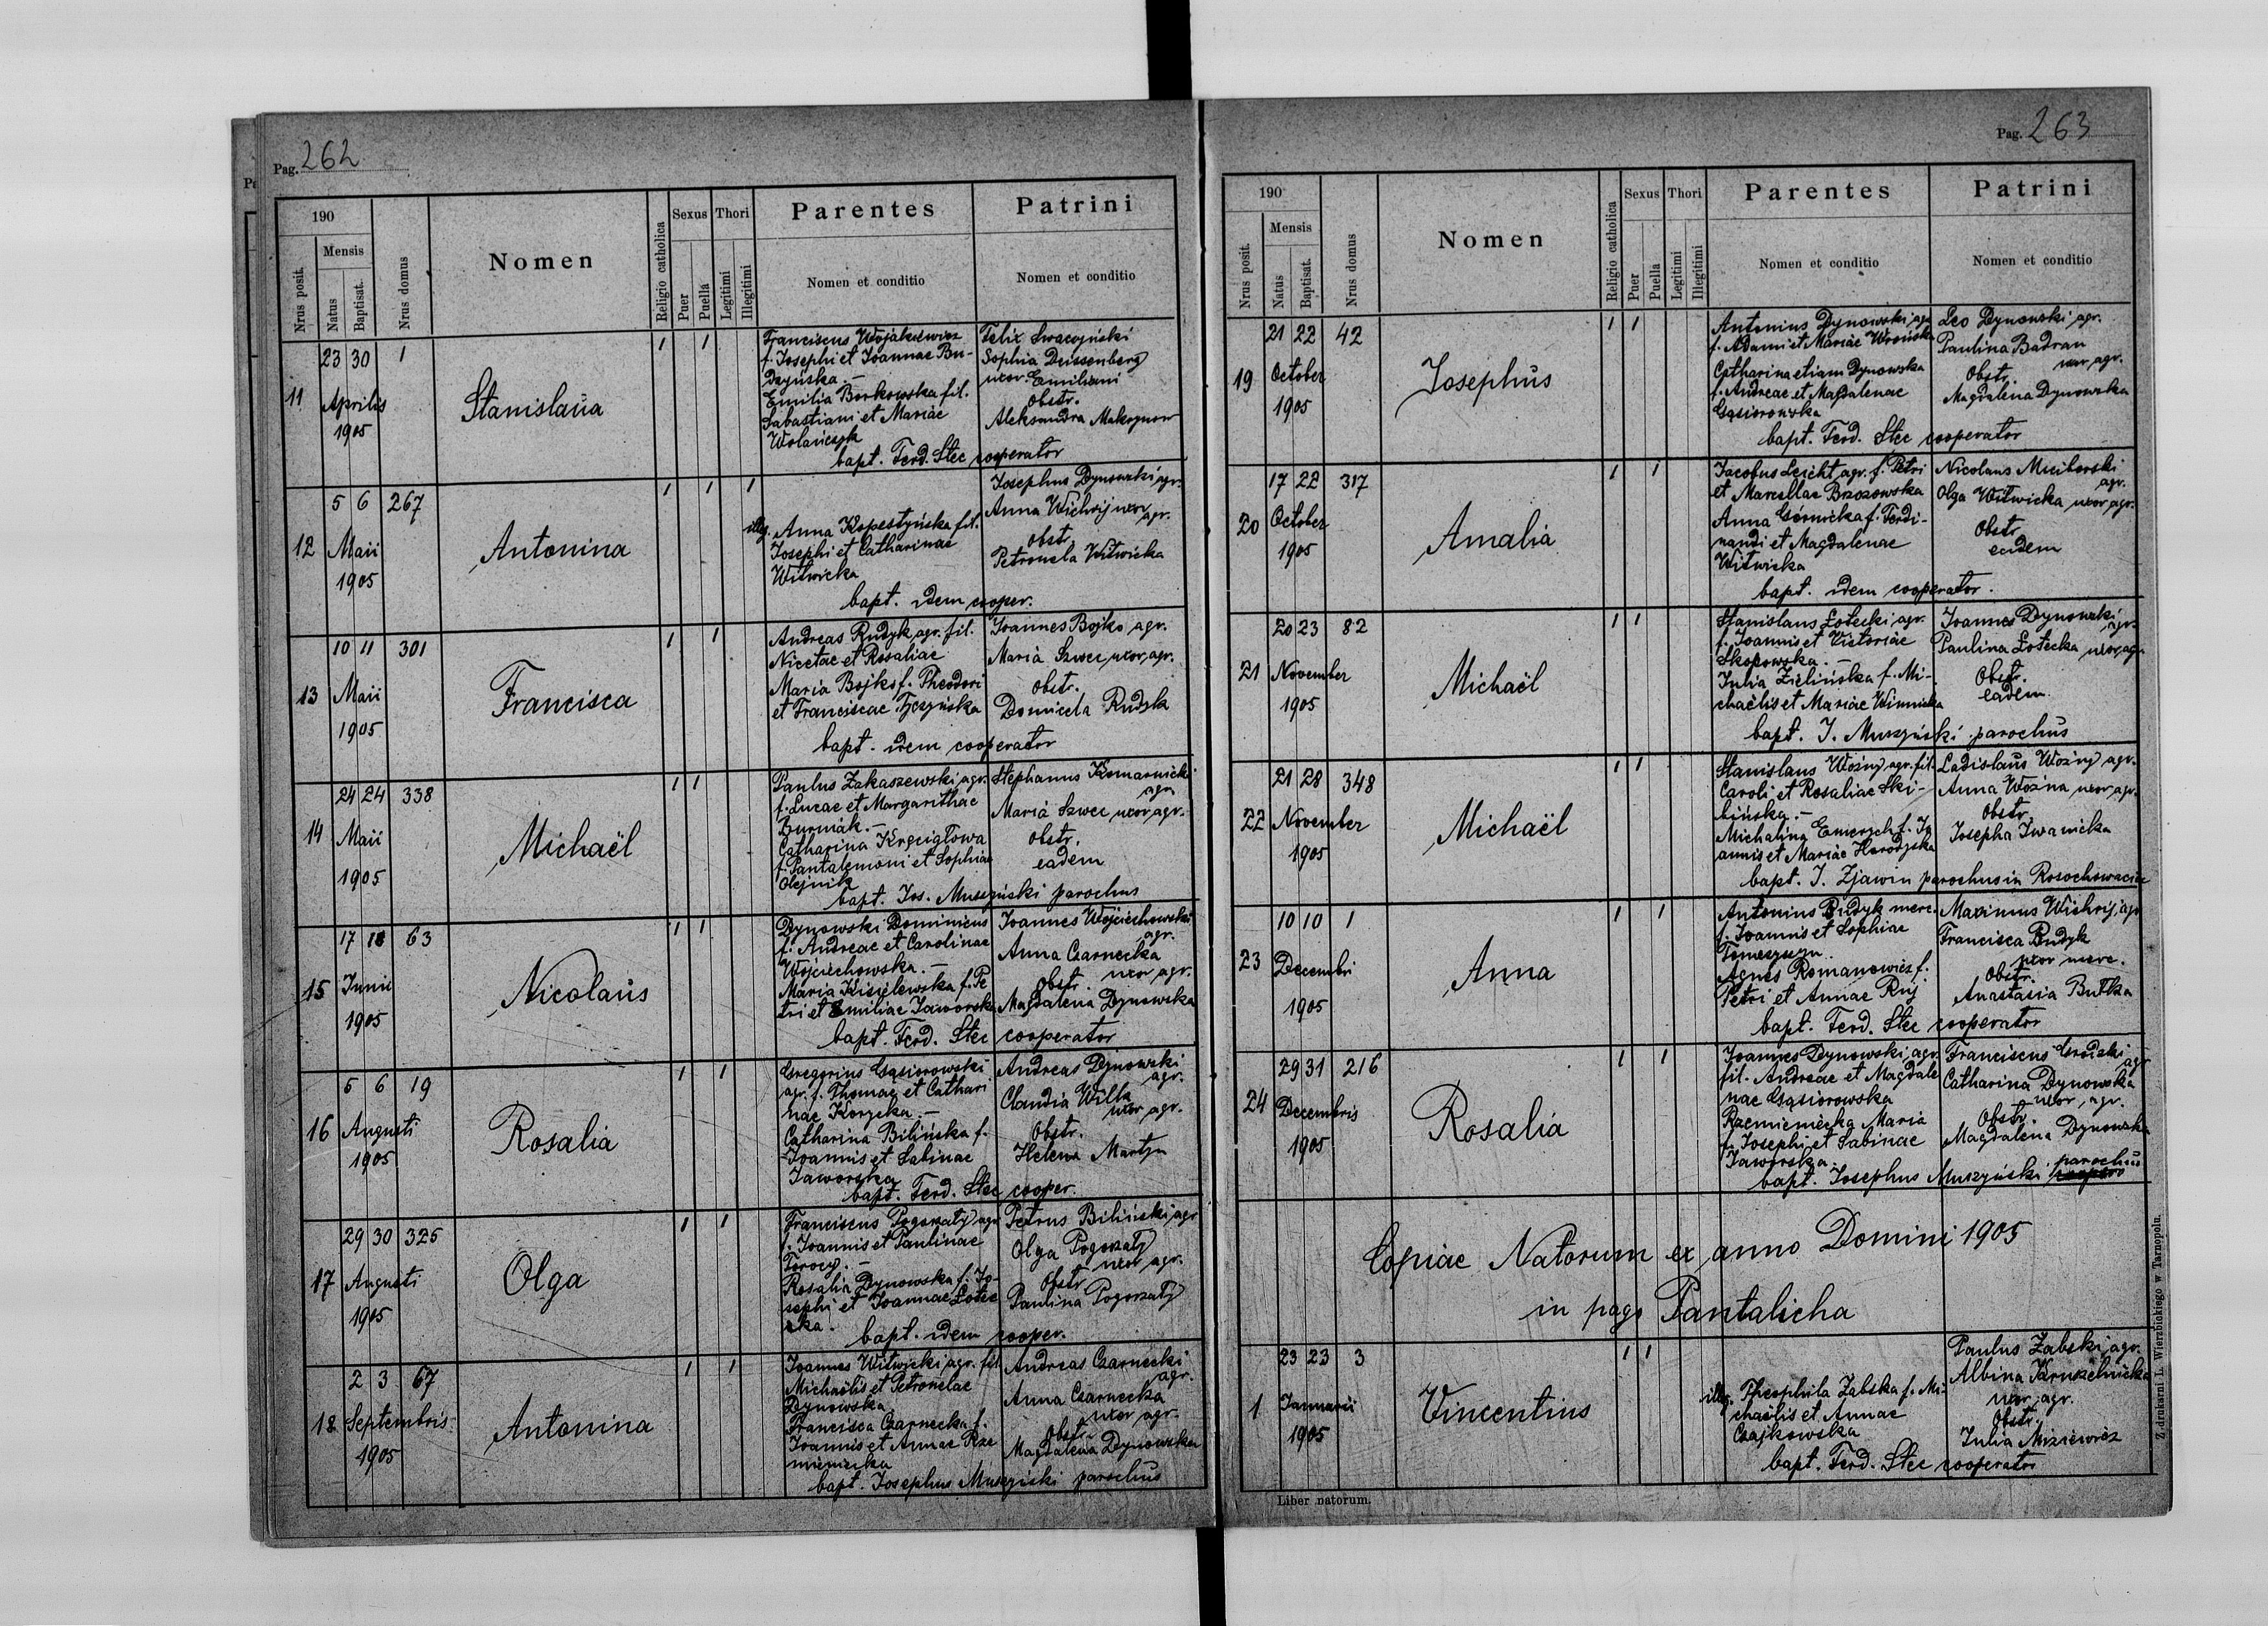 Pag. 262
190
Nrus posit.
Mensis
Natus
Baptisat.
Nrus domus
Nomen
Religio catholica
Sexus
Puer
Puella
Thori
Legitimi
Illegitimi
Parentes
Nomen et conditio
Patrini
Nomen et conditio
11
23 30 1
Aprilis
1905
Stanislaŭa
1 1
Franciscus Wojakiewicz
f. Josephi et Joannae Bu-
dzyńska. -
Emilia Borkowska fil.
Sabastiani et Mariae
Wolańczyk
Felix
Sophia Deissenberg
uxor Emiliani
obstr.
Aleksandra Makoynow
bapt. Ferd. Stec cooperator
12
5 6 267
Maii
1905
Antonina
1 1 1
illeg. Anna Kopestyńska fil.
Josephi et Catharinae
Witwicka
Josephus Dynowski agr.
Anna Wichrij uxor
agr.
obstr.
Petronela Witwicka
bapt. idem cooper.
13
10 11 301
Maii
1905
Francisca
1 1
Andreas Rudyk, agr. fil.
Nicetae et Rosaliae
Maria Bojko f. Theodori
et Franciscae Tyczyńska
Joannes Bojko agr.
Maria Szwec, uxor, agr.
obstr.
Domicela Rudyk
bapt. idem cooperator
14
24 24 338
Maii
1905
Michaël
1 1
Paulus Zakaszewski, agr.
f. Lucae et Margarithae
Burniak. -
Catharina Kręciatowa
f. Pantalemoni et Sophiae
Olejnik
Stephanus Komarnicki
agr.
Maria Szwec uxor, agr.
obstr.
eadem
bapt. Jos. Muszyński parochus
15
17 18 63
Junii
1905
Nicolaŭs
1 1
Dynowski Dominicus
f. Andreae et Carolinae
Wojciechowska. -
Maria Kisielewska f. Pe
tri et Emiliae Jaworska
Joannes Wojciechowski
agr.
Anna Czarnecka
uxor agr.
Obstr.
Magdalena Dynowska
bapt. Ferd. Stec cooperator
16
5 6 19
Augusti
1905
Rosalia
1 1
Gregorius Gąsiorowski
agr. f. Thomae et Cathari
nae Korycka. -
Catharina Bilińska f.
Joannis et Sabinae
Jaworska
Andreas Dynowski
agr.
Claudia Wilk
uxor agr.
Obstr.
Helena Martyn
bapt. Ferd. Stec cooper.
17
29 30 325
Augusti
1905
Olga
1 1
Franciscus Pogorzały agr
f. Joannis et Paulinae
Forocy. -
Rosalia Dynowska f. Jo-
sephi et Joannae Łotec
cka.
Petrus Biliński agr
Olga Pogorzały
uxor agr.
Obstr.
Paulina Pogorzały
bapt. idem cooper.
18
2 3 67
Septembris
1905
Antonina
1 1
Joannes Witwicki, agr. fil.
Michaëlis et Petronelae
Dynowska
Francisca Czarnecka f.
Joannis et Annae Rze
mieniecka
Andreas Czarnecki
agr.
Anna Czarnecka
uxor agr.
Obstr.
Magdalena Dynowska
bapt. Josephus Muszyński parochŭs
Pag. 263
190
Nrus posit.
Mensis
Natus
Baptisat.
Nrus domus
Nomen
Religio catholica
Sexus
Puer
Puella
Thori
Legitimi
Illegitimi
Parentes
Nomen et conditio
Patrini
Nomen et conditio
19
21 22 42
October
1905
Josephŭs
1 1
Antonius Dynowski, agr
f. Adami et Mariae Wrońska
Catharina etiam Dynowska
f. Andreae et Magdalenae
Gąsiorowska
Leo Dynowski agr.
Paulina Badran
uxor, agr.
Obstr.
Magdalena Dynowska
bapt. Ferd. Stec cooperator
20
17 22 317
October
1905
Amalia
1 1
Jacobus Leicht, agr. f. Petri
et Marcellae Brzozowska
Anna Górnicka f. Ferdi-
nandi et Magdalenae
Witwicka
Nicolaus Muiborski
agr.
Olga Witwicka uxor, agr.
Obstr.
eadem
bapt. idem cooperator.
21
20 23 82
November
1905
Michaël
1 1
Stanislaus Łotecki agr.
f. Joannis et Victoriae
Skopowska. -
Julia Zielińska f. Mi-
chaëlis et Mariae Winnicka
Joannes Dynowski
agr.
Paulina Łotecka uxor, agr
Obstr.
eadem
bapt. J. Muszyński parochŭs
22
21 28 348
November
1905
Michaël
1 1
Stanislaus Woźny agr. fil.
Caroli et Rosaliae Ski-
bińska. -
Michalina Emerych f. Jo
annis et Mariae Horodyska
Ladislaŭs Woźny agr.
Anna Woźna uxor, agr.
Obstr.
Josepha Iwanicka
bapt. J. Zjawin parochus in Rosochowaciec
23
10 10 1
Decembri
1905
Anna
1 1
Antonius Rudyk merc.
f. Joannis et Sophiae
Tomeszyn.
Agnes Romanowicz f.
Petri et Annae Ruj
Maximus Wichrij, agr
Francisca Rudyk
uxor merc.
Obstr.
Anastasia Butka
bapt. Ferd. Stec cooperator
24
29 31 216
Decembris
1905
Rosalia
1 1
Joannes Dynowski, agr.
fil. Andreae et Magdale
nae Gąsiorowska
Rzemieniecka Maria
f. Josephi et Sabinae
Jaworska
Franciscus Grodzki
agr
Catharina Dynowska
uxor, agr.
Obstr.
Magdalena Dynowska
bapt. Josephus Muszyński parochŭs
Copiae Natorum ex anno Domini 1905
in pago Pantalicha
1
23 23 3
Januarii
1905
Vincentius
1 1
illeg. Theophila Zabska f. Mi-
chaëlis et Annae
Czajkowska
Paulus Zabski, agr.
Albina Karuzelnicka
uxor, agr.
Obstr.
Julia Misiewicz
bapt. Ferd. Stec cooperator
Liber natorum.
Z drukarni L. Wierzbickiego w Tarnopolu.